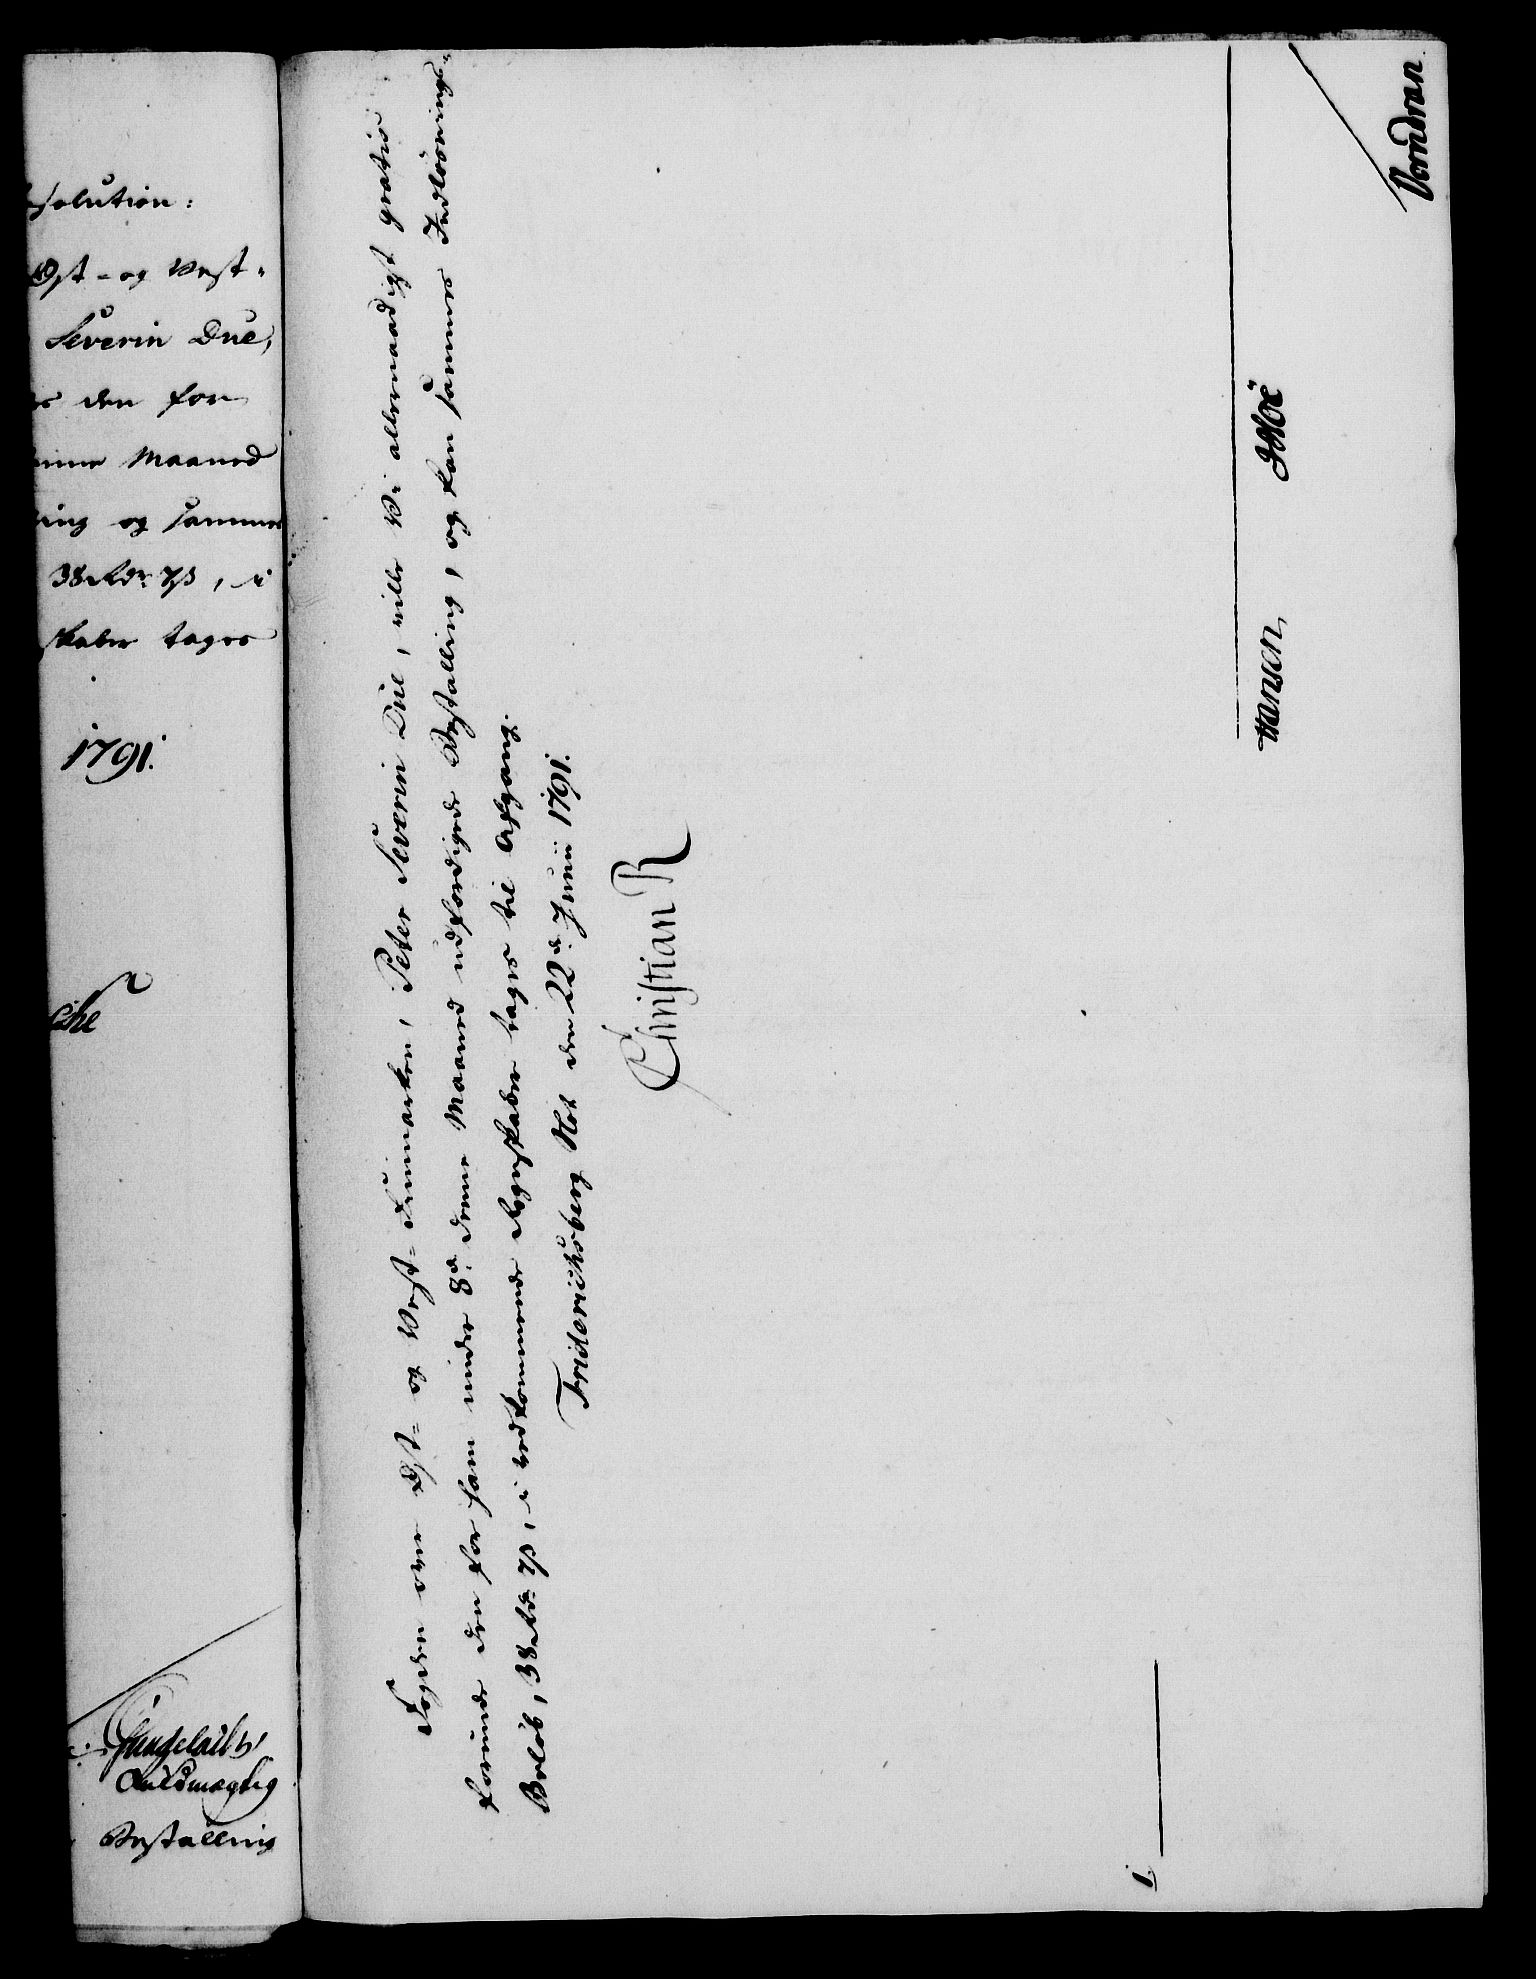 solution:
Øst- og Vest-
Severin Due,
den for
Maaned
ing og samme
38 Rdr. 7 ß, i
skaber tages
1791.
Fuldmægtig
Bestalling
Fogden over Øst- og Vest-Finmarken, Peter Severin Due, ville Vi allernaadigst gratis
forunde den for ham under 8d. denne Maaned udfærdigede Bestalling, og kan sammes Indløsnings-
Beløb, 38 Rdr. 7 ß, i vedkommende Regnskaber tages til Afgang.
Friderichsberg Slot den 22d. Junii 1791.
Christian R
1.
Hansen,
Vorndran